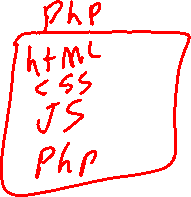 php
html
css
JS
php